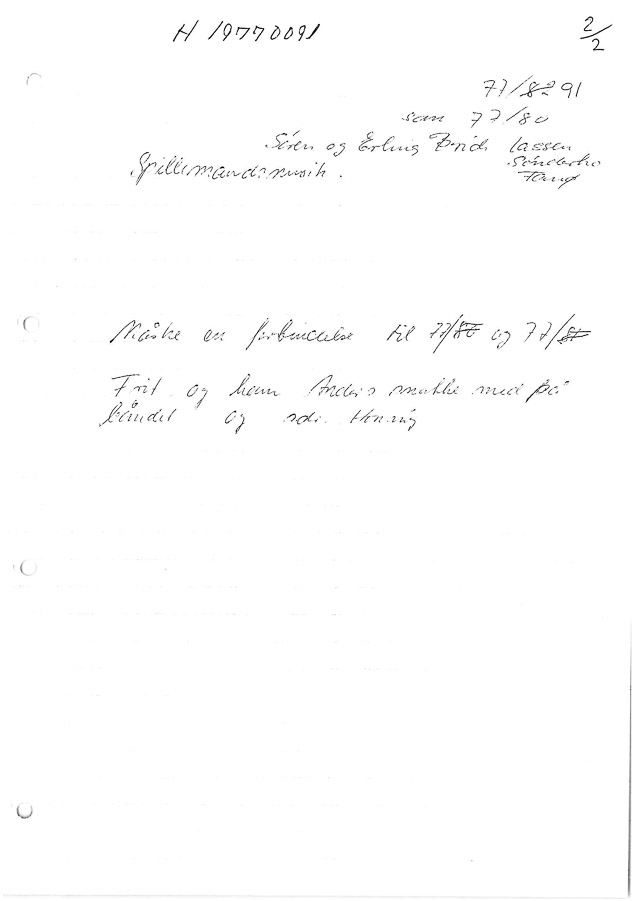 H 19770091
2/2
77/82 91
som 77/80
Søren og Erling Lassen
Sønderho
Spillemandsmusik.
Fanø
Måske en forbindelse til 77/80 og 77/81
Frit og ham Anders med på
båndet og Henning